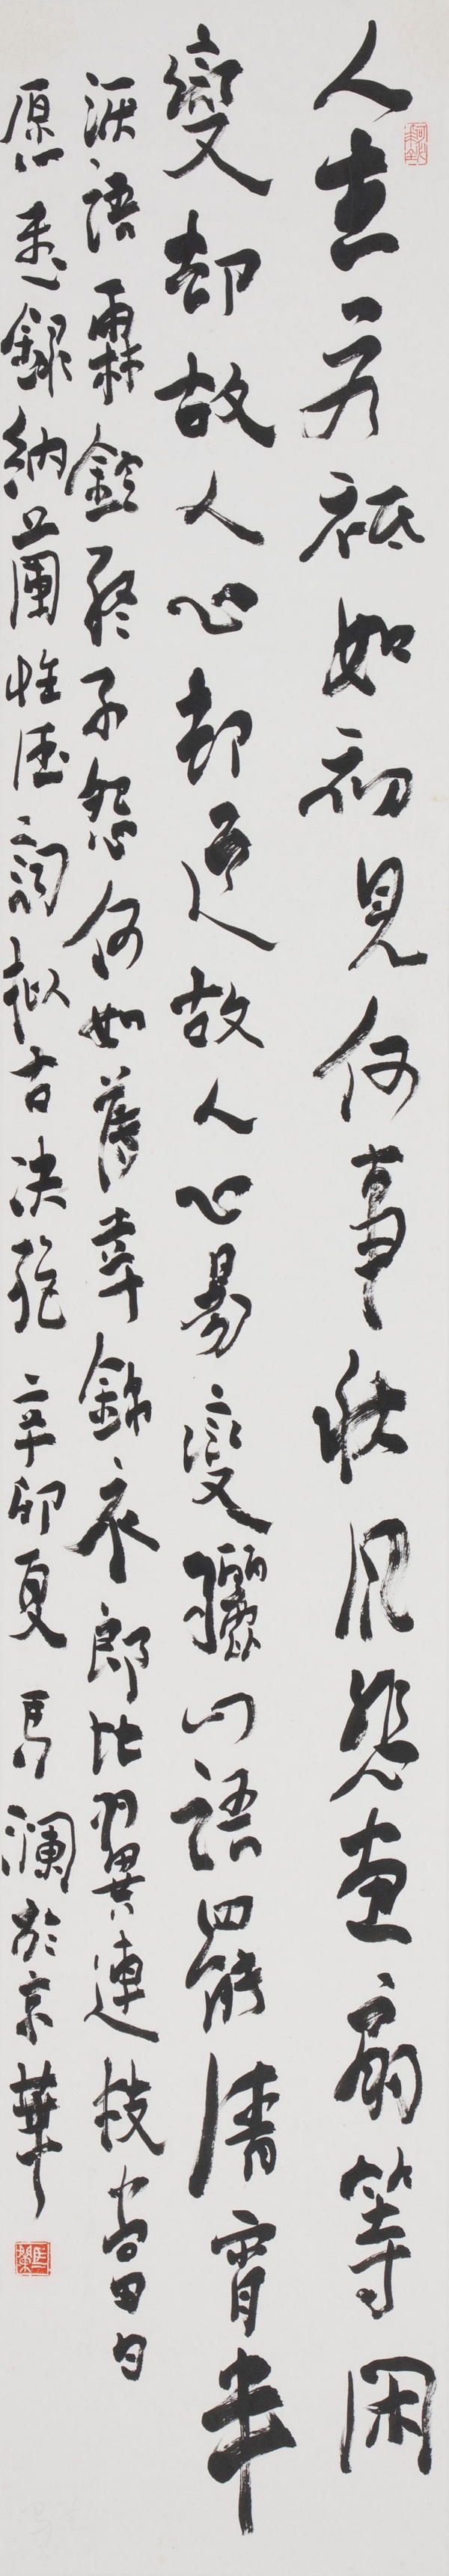 人生若祇如初見何事秋風悲畫扇等閑
變却故人心却道故人心易變驪山語罷清宵半
淚語霖鈴終不怨何如薄幸錦衣郎比翼連枝當日
愿 錄納蘭性德詞拟古决絶 辛卯夏 馬瀾於京華